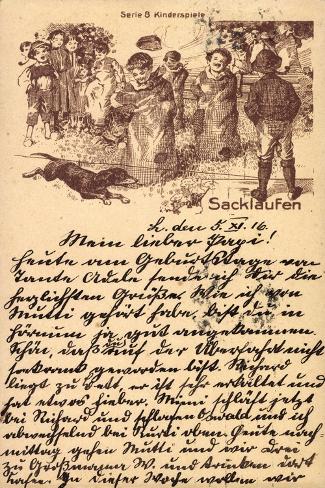 Serie 8 Kinderspiele
Sacklaufen
L. den 5. XI. 16.
Mein lieber Papi!
Heute am Geburtstage von
Tante Adele sende ich Dir die
herzlichsten Grüße. Wie ich von
Mutti gehört habe, bist du in
Hörnum ja gut angekommen.
Schön, daß auf der Überfahrt nicht
seekrank geworden bist. Richard
liegt zu Bett, er ist sehr erkältet und
hat etwas Fieber. Mimi schläft jetzt
bei Richard und schlafen Oswald und ich
abwechselnd bei Mutti oben. Heute nach-
mittag gehen Mutti und wir drei
zu Großmama W. und trinken dort
Kaffee. In dieser Woche wollen wir